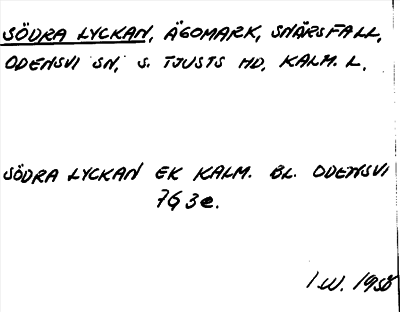 SÖDRA LYCKAN, ÄGOMARK, SNÄRSFALL,
ODENSVI SN, S. TJUSTS HD, KALM. L.
SÖDRA LYCKAN EK KALM. BL. ODENSVI
7G 3e.
I.W. 1958